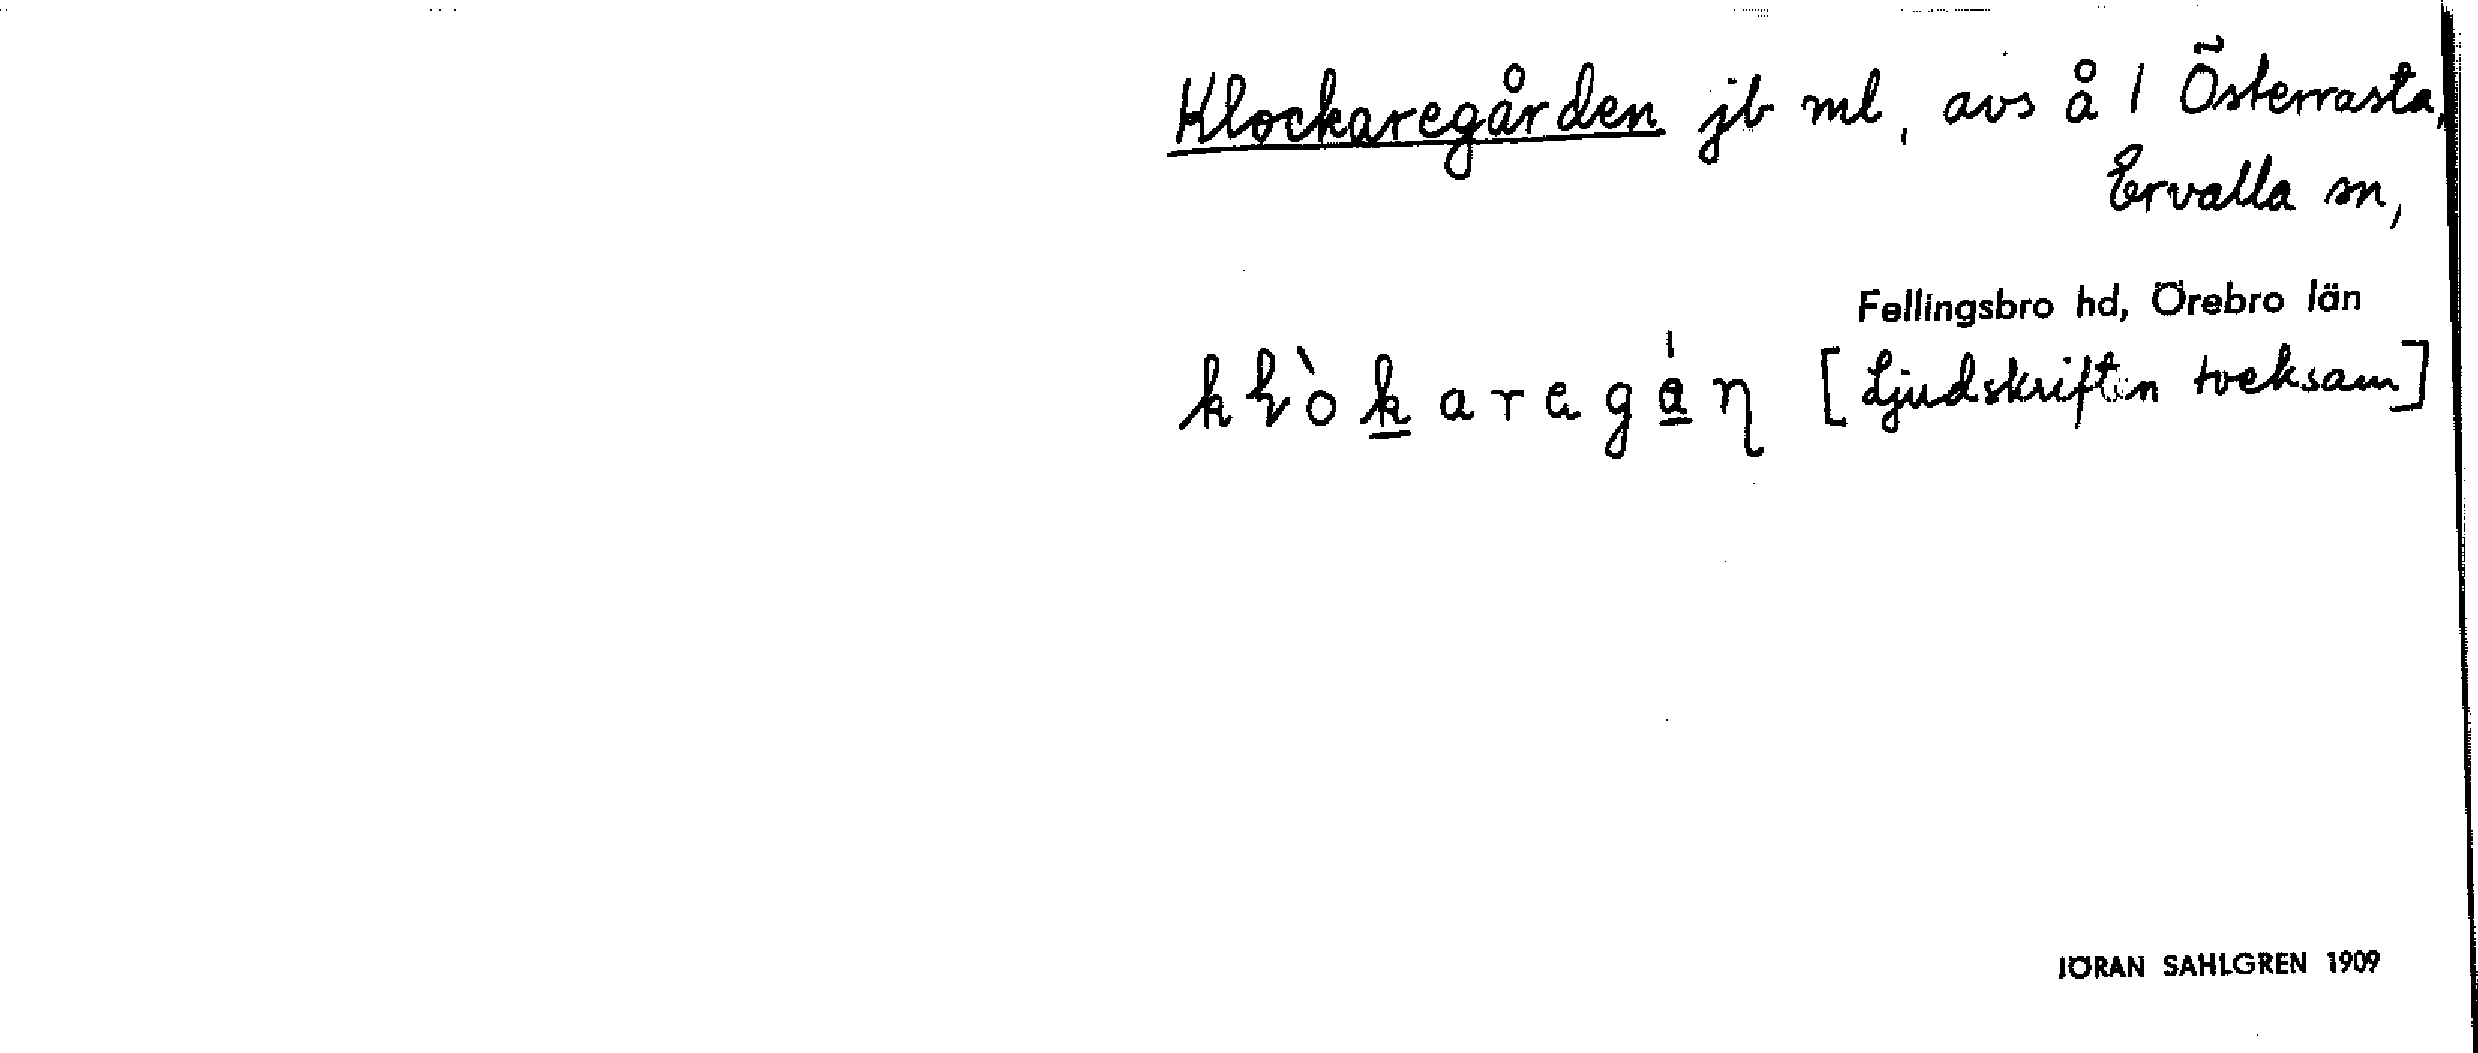 Klockaregården jb ml, avs å 1 Österrasta,
Ervalla sn,
Fellingsbro hd, Örebro län
[Ljudskriften tveksam]
JÖRAN SAHLGREN 1909